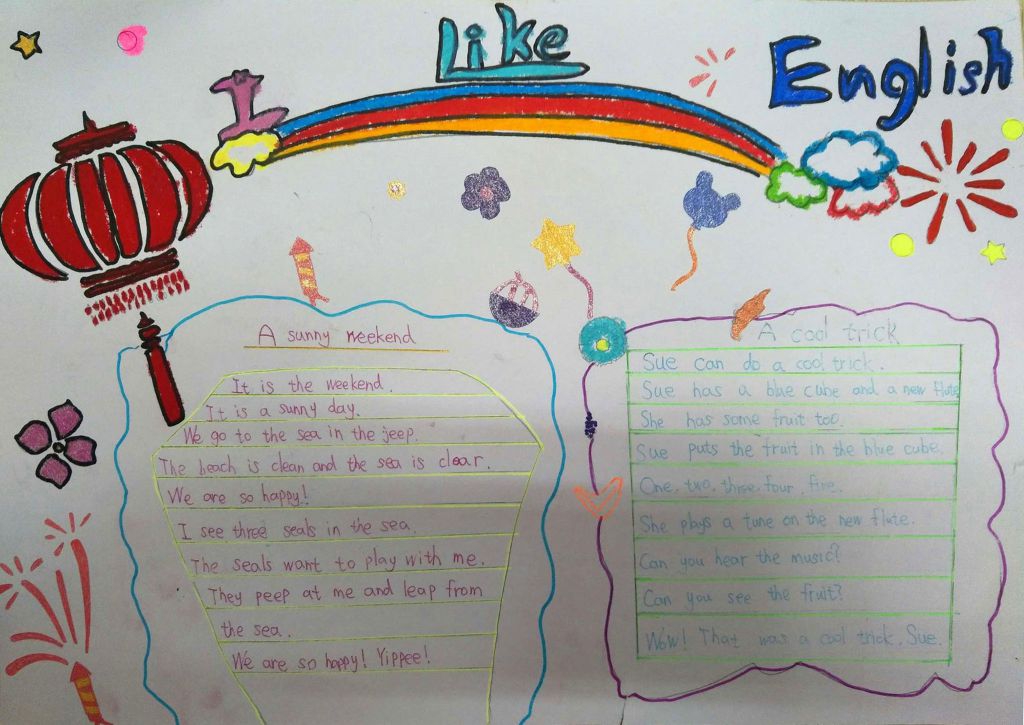 I Like English
A sunny weekend
It is the weekend.
It is a sunny day.
We go to the sea in the jeep.
The beach is clean and the sea is clear.
We are so happy!
I see three seals in the sea.
The seals want to play with me.
They peep at me and leap from
the sea.
We are so happy! Yippee!
A cool trick
Sue can do a cool trick.
Sue has a blue cube and a new flute
She has some fruit too.
Sue puts the fruit in the blue cube.
One, two, three, four, five.
She plays a tune on the new flute.
Can you hear the music?
Can you see the fruit?
Wow! That was a cool trick, Sue